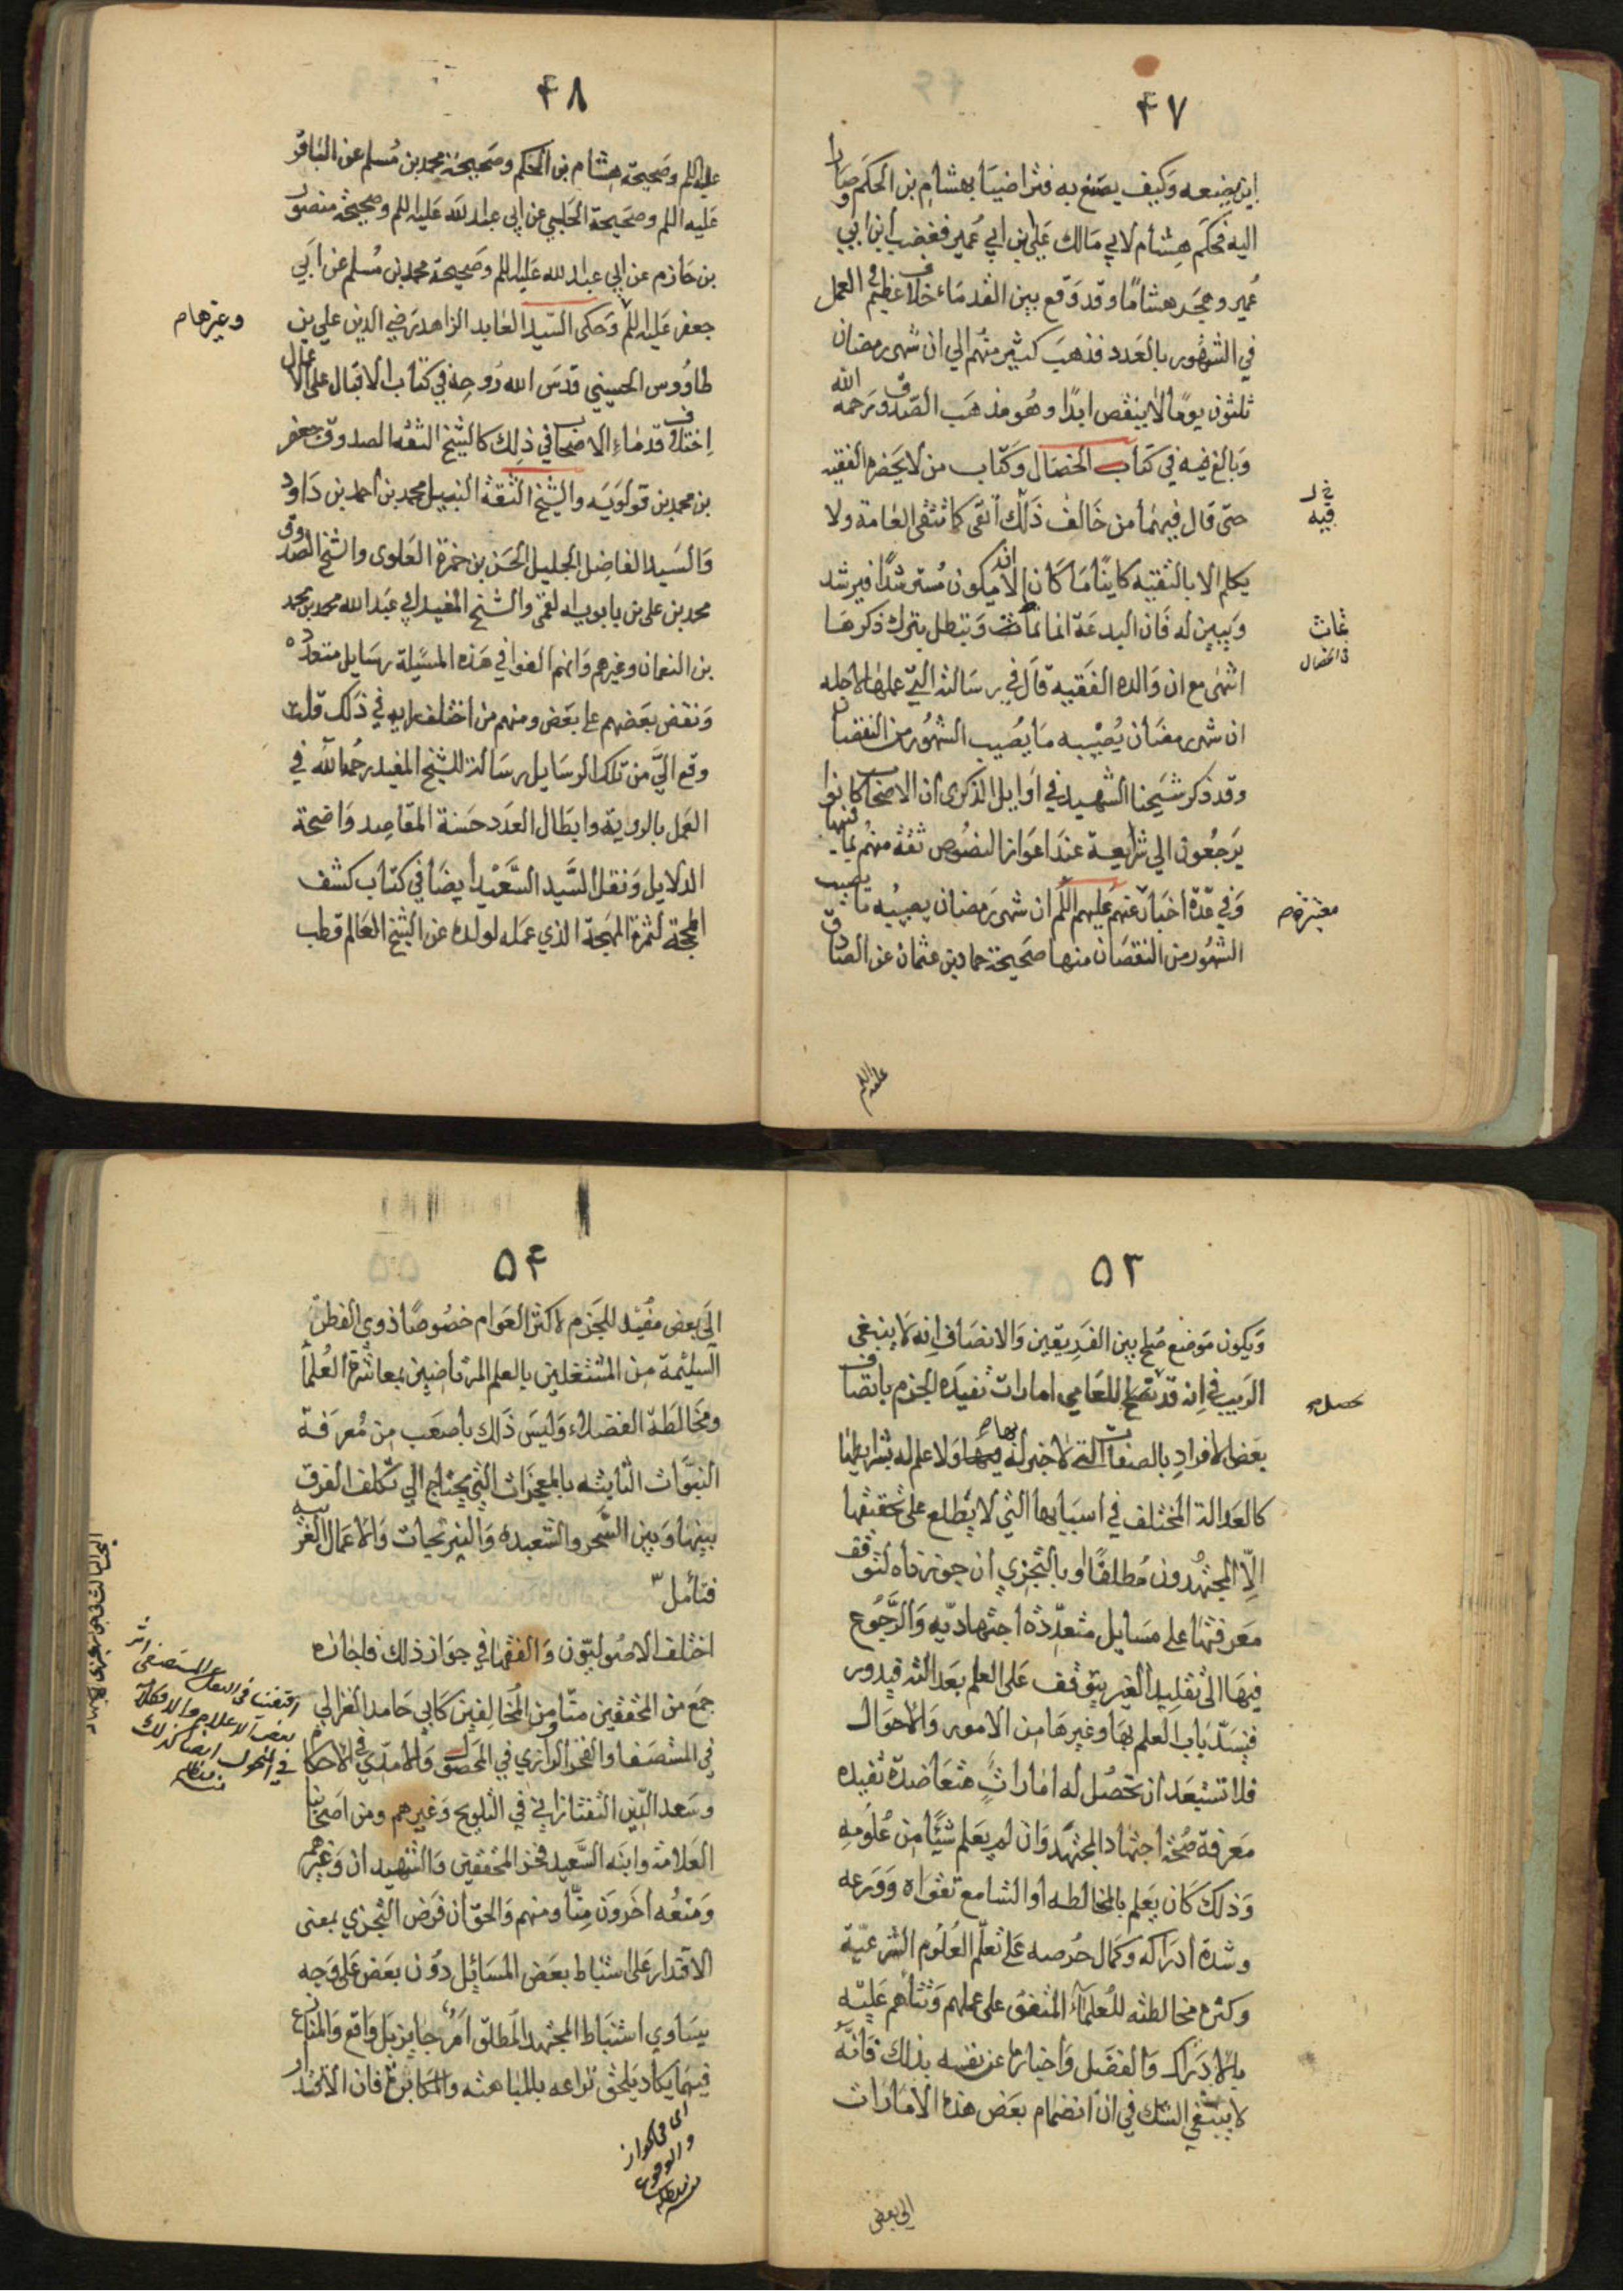 ۴۷
اين يضعه وكيف يصنع به فتراضيا بهشام بن الحكم وصارا
اليه فحكم هشام لابي مالك على بن ابي عمير فغضب ابن ابي
عمير وهجر هشاما وقد وقع بين القدماء خلاف عظيم في العمل
في الشهور بالعدد فذهب كثير منهم الي ان شهر رمضان
ثلثون يوما لا ينقص ابدا وهو مذهب الصدوق رحمه الله
وبالغ فيه في كتاب الخصال وكتاب من لا يحضره الفقيه
فيه
حتى قال فيهما من خالف ذلك اتقى كما تتقى العامة ولا
يكلم الا بالتقيه كاينا ما كان الا ان يكون مسترشدا فيرشد
ويبين له فان البدعة انما تماث وتبطل بترك ذكرها
تماث
في الخصال
انتهى مع ان والده الفقيه قال في رسالته التي عملها لاجله
ان شهر رمضان يصيبه ما يصيب الشهور من النقصان
وقد ذكر شيخنا الشهيد في اوايل الذكرى ان الاصحاب كانوا
يرجعون الي شرايعه عند اعواز النصوص ثقة منهم بما فيها
وفي عدة اخبار عنهم عليهم اللم ان شهر رمضان يصيبه ما يصيب
معتبرة
الشهور من النقصان منها صحيحة حماد بن عثمان عن الصادق
عليه اللم
۴۸
عليه اللم وصحيحة هشام بن الحكم وصحيحة محمد بن مسلم عن الباقر
عليه اللم وصحيحة الحلبي عن ابي عبد الله عليه اللم وصحيحة منصور
بن حازم عن ابي عبد الله عليه اللم وصحيحة محمد بن مسلم عن ابي
جعفر عليه اللم وحكى السيد العابد الزاهد رضي الدين علي بن
وغيرها
طاووس الحسيني قدس الله روحه في كتاب الاقبال على الاعمال
اختلاف قدماء الاصحاب في ذلك كالشيخ الثقه الصدوق جعفر
بن محمد بن قولويه والشيخ الثقة النبيل محمد بن احمد بن داود
والسيد الفاضل الجليل الحسن بن حمزة العلوى والشيخ الصدوق
محمد بن على بن بابويه القمى والشيخ المفيد ابي عبد الله محمد بن محمد
بن النعمان وغيرهم وانهم الفوا في هذه المسيلة رسايل متعدده
ونقض بعضهم على بعض ومنهم من اختلف رايه في ذلك قلت
وقع الي من تلك الرسايل رسالة للشيخ المفيد رحمه الله في
العمل بالروية وابطال العدد حسنة المقاصد واضحة
الدلايل ونقل السيد السعيد ايضا في كتاب كشف
المحجة لثمرة المهجة الذي عمله لولده عن الشيخ العالم قطب
۵۳
ويكون موضع صلح بين الفريقين والانصاف انه لا ينبغي
الريب في انه قد تحصل للعامي امارات تفيده الجزم باتصاف
تحصل
بعض الافراد بالصفات التي لا خبر له بها ولا علم له بشرايطها
كالعدالة المختلف في اسبابها التي لا يطلع على تحقيقها
الا المجتهدون مطلقا او بالتجزي ان جوزناه لتوقف
معرفتها على مسايل متعدده اجتهاديه والرجوع
فيها الى تقليد الغير يتوقف على العلم بعدالته فيدور
فينسد باب العلم بها وغيرها من الامور والاحوال
فلا تستبعد ان تحصل له امارات متعاضدة تفيده
معرفة صحة اجتهاد المجتهد وان لم يعلم شيئا من علومه
وذلك كان يعلم بالمخالطه او التسامع تقواه وورعه
وشدة ادراكه وكمال حرصه على تعلم العلوم الشرعية
وكثره مخالطته للعلماء المتفق على عملهم وثناهم عليه
بالادراك والفضل واخباره عن نفسه بذلك فانه
لا ينبغي الشك في ان انضمام بعض هذه الامارات
الي بعض
۵۴
الي بعض مفيد للجزم لاكثر العوام خصوصا ذوي الفطن
السليمة من المشتغلين بالعلم المرتاضين بمعاشرة العلماء
ومخالطة الفضلاء وليس ذلك باصعب من معرفة
النبوات الثابته بالمعجزات التي يحتاج الي تكلف الفرق
بينها وبين السحر والشعبده والنيرنجات والاعمال الغريبه
فتأمل
اختلف الاصوليون والفقها في جواز ذلك فاجازه
جمع من المحققين منا ومن المخالفين كابي حامد الغزالي
في المستصفا والفخر الرازي في المحصول والامدي في الاحكام
وسعد الدين التفتازاني في التلويح وغيرهم ومن اصحابنا
العلامة وابنه السعيد فخر المحققين والشهيدان وغيرهم
ومنعه اخرون منا ومنهم والحق ان فرض التجزي بمعنى
الاقتدار على استنباط بعض المسائل دون بعض على وجه
يساوي استنباط المجتهد المطلق امر جايز بل واقع والمنازع
فيهما يكاد يلحق نزاعه بالمباهته والمكابرة فان الاقتدار
اى في الجواز
والوقوع
منه مد ظله